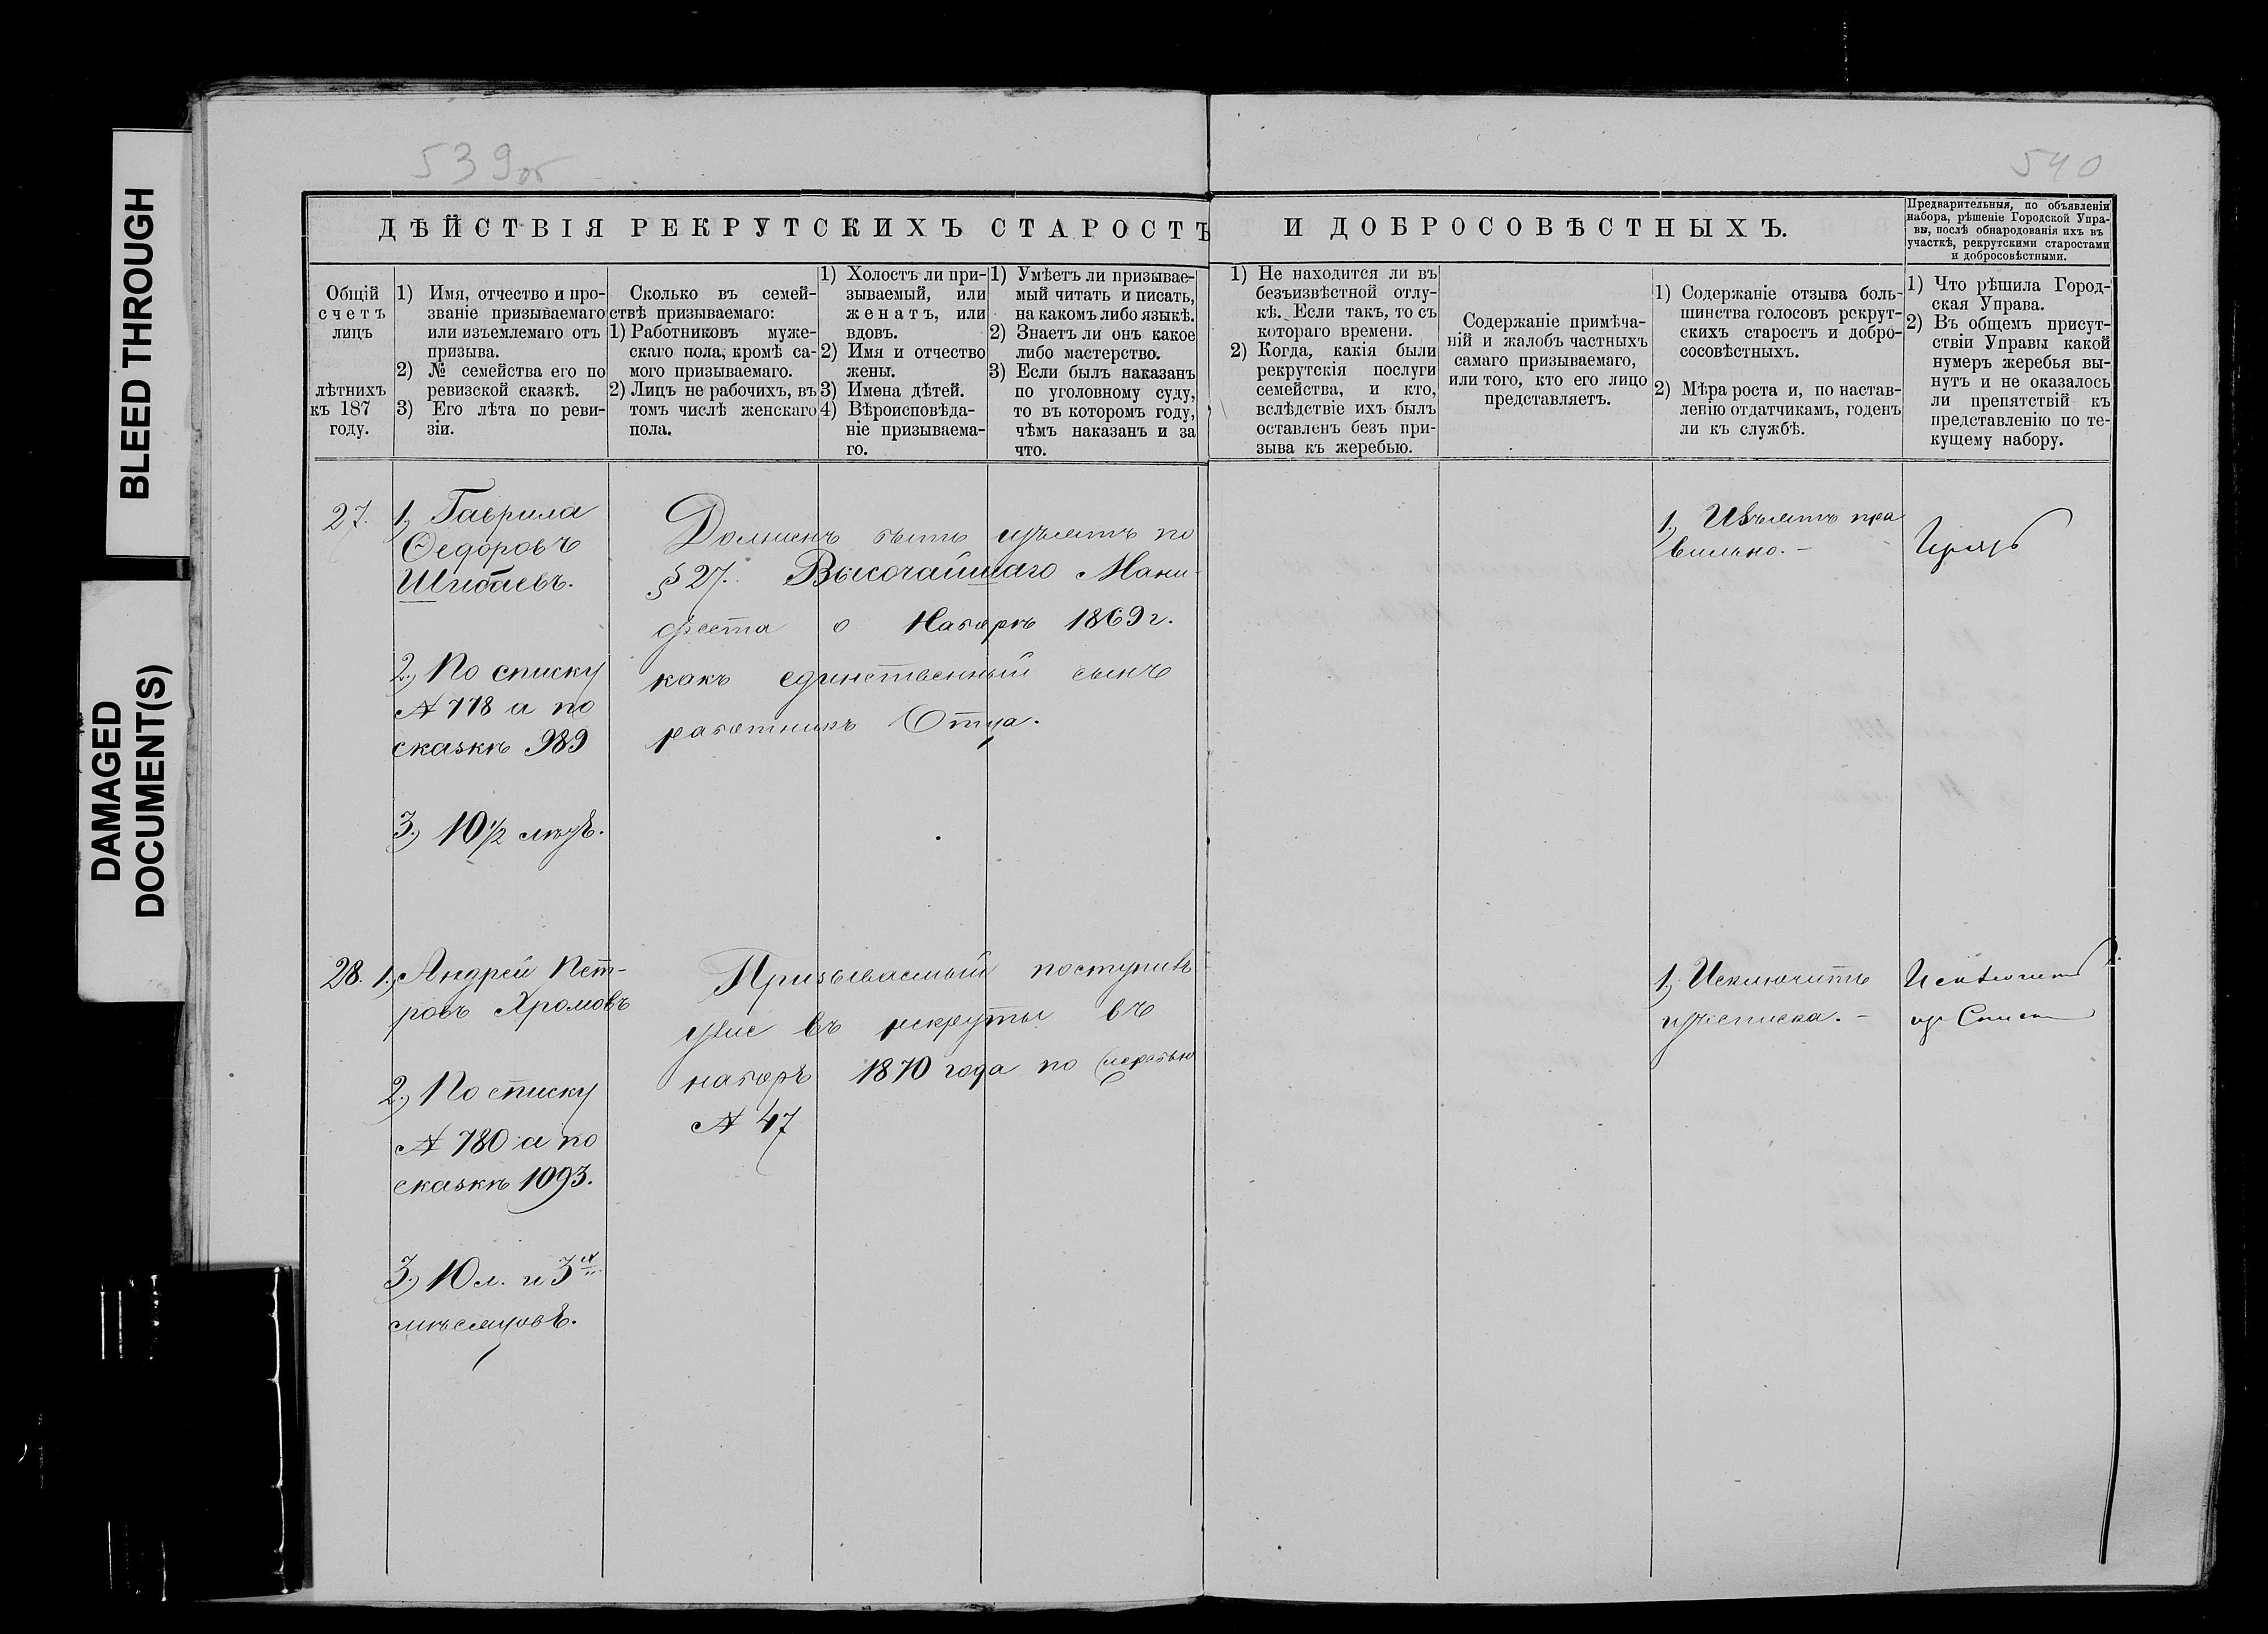 BLEED THROUGH
DAMAGED
DOCUMENT(S)
539об
540
ДѢЙСТВІЯ РЕКРУТСКИХЪ СТАРОСТЪ И ДОБРОСОВѢСТНЫХЪ.
Предварительныя, по объявленіи
набора, рѣшеніе Городской Упра-
вы, послѣ обнародованія ихъ въ
участкѣ, рекрутскими старостами
и добросовѣстными.
Общій
счетъ
лицъ
лѣтнихъ
къ 187
году.
1) Имя, отчество и про-
званіе призываемаго
или изъемлемаго отъ
призыва.
2) № семейства его по
ревизской сказкѣ.
3) Его лѣта по реви-
зіи.
Сколько въ семей-
ствѣ призываемаго:
1) Работниковъ муже-
скаго пола, кромѣ са-
мого призываемаго.
2) Лицъ не рабочихъ, въ
томъ числѣ женскаго
пола.
1) Холостъ ли при-
зываемый, или
женатъ, или
вдовъ.
2) Имя и отчество
жены.
3) Имена дѣтей.
4) Вѣроисповѣда-
ніе призываема-
го.
1) Умѣетъ ли призывае-
мый читать и писать,
на какомъ либо языкѣ.
2) Знаетъ ли онъ какое
либо мастерство.
3) Если былъ наказанъ
по уголовному суду,
то въ которомъ году,
чѣмъ наказанъ и за
что.
1) Не находится ли въ
безъизвѣстной отлу-
кѣ. Если такъ, то съ
котораго времени.
2) Когда, какія были
рекрутскія послуги
семейства, и кто,
вслѣдствіе ихъ былъ
оставленъ безъ при-
зыва къ жеребью.
Содержаніе примѣча-
ній и жалобъ частныхъ
самаго призываемаго,
или того, кто его лицо
представляетъ.
1) Содержаніе отзыва боль-
шинства голосовъ рекрут-
скихъ старостъ и добро-
сосовѣстныхъ.
2) Мѣра роста и, по настав-
ленію отдатчикамъ, годенъ
ли къ службѣ.
1) Что рѣшила Город-
ская Управа.
2) Въ общемъ присут-
ствіи Управы какой
нумеръ жеребья вы-
нутъ и не оказалось
ли препятствій къ
представленію по те-
кущему набору.
27.
1, Гаврила
Ѳедоровъ
Шибаевъ.
2., По списку
№ 778 а по
сказкѣ 989
3., 10 1/2 лѣтъ.
Долженъ быть изъятъ по
§ 27. Высочайшаго Мани-
феста о Наборѣ 1869 г.
какъ единственный сынъ
работникъ Отца.
1., Изъятъ пра
вильно. –
28.
1., Андрей Пет-
ровъ Хромовъ
2., По списку
№ 780 а по
сказкѣ 1093.
3., 10 л. и 3х
мѣсяцовъ.
Призываемый поступилъ
уже въ рекруты въ
наборъ 1870 года по жеребью
№ 47
1., Исключить
изъ списка. –
Исключить
изъ Списка